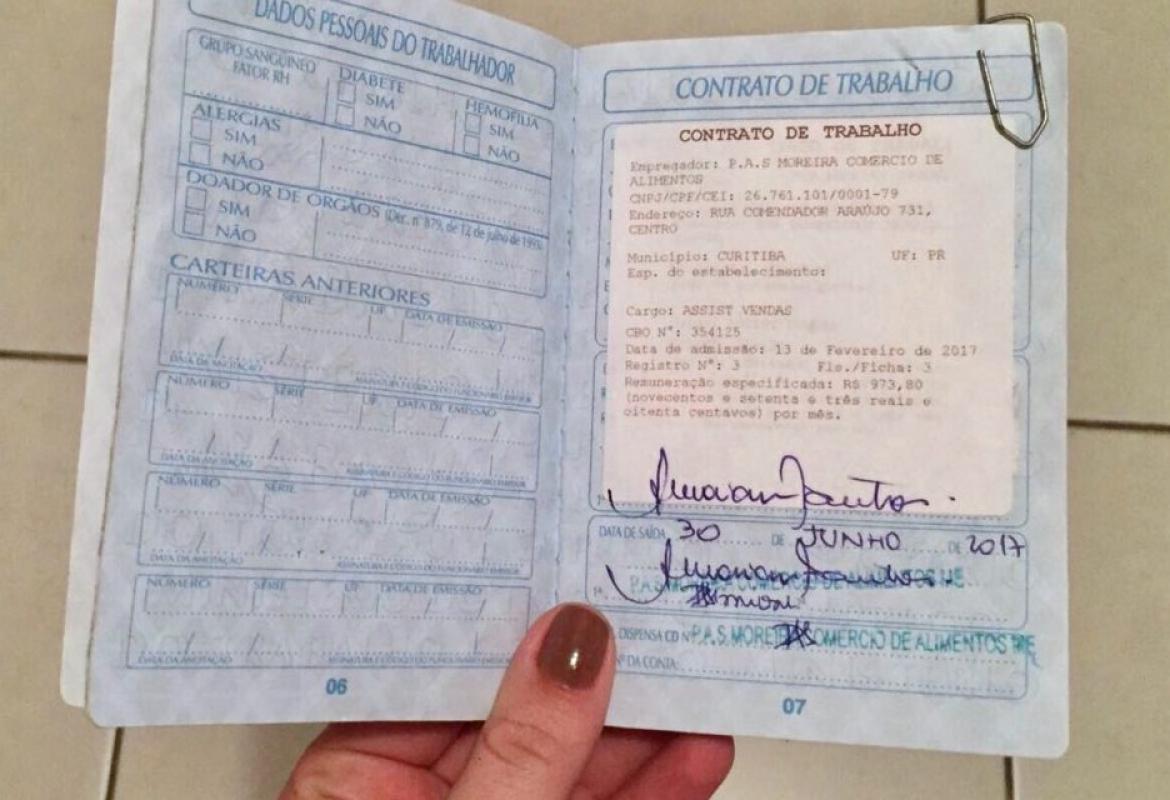 DADOS PESSOAIS DO TRABALHADOR
GRUPO SANGUÍNEO
FATOR RH
DIABETE
SIM
NÃO
HEMOFILIA
SIM
NÃO
ALERGIAS
SIM
NÃO
DOADOR DE ORGÃOS (Dec. nº 879, de 12 de julho de 1993)
SIM
NÃO
CARTEIRAS ANTERIORES
NÚMERO SÉRIE UF DATA DE EMISSÃO
DATA DA ANOTAÇÃO ASSINATURA E CÓDIGO DO FUNCIONÁRIO EMISSOR
NÚMERO SÉRIE UF DATA DE EMISSÃO
DATA DA ANOTAÇÃO ASSINATURA E CÓDIGO DO FUNCIONÁRIO EMISSOR
NÚMERO SÉRIE UF DATA DE EMISSÃO
DATA DA ANOTAÇÃO ASSINATURA E CÓDIGO DO FUNCIONÁRIO EMISSOR
NÚMERO SÉRIE UF DATA DE EMISSÃO
DATA DA ANOTAÇÃO ASSINATURA E CÓDIGO DO FUNCIONÁRIO EMISSOR
06
CONTRATO DE TRABALHO
CONTRATO DE TRABALHO
Empregador: P.A.S MOREIRA COMERCIO DE
ALIMENTOS
CNPJ/CPF/CEI: 26.761.101/0001-79
Endereço: RUA COMENDADOR ARAÚJO 731,
CENTRO
Município: CURITIBA UF: PR
Esp. do estabelecimento:
Cargo: ASSIST VENDAS
CBO N°: 354125
Data de admissão: 13 de Fevereiro de 2017
Registro N°: 3 Fls./Ficha: 3
Remuneração especificada: R$ 973,80
(novecentos e setenta e três reais e
oitenta centavos) por mês.
DATA DE SAÍDA 30 DE JUNHO DE 2017
P.A.S MOREIRA COMERCIO DE ALIMENTOS ME
DISPENSA CD Nº P.A.S. MOREIRA COMERCIO DE ALIMENTOS ME
Nº DA CONTA:
07